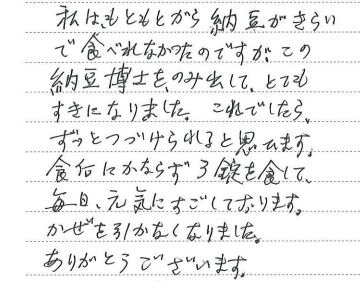 私は、もともとから納豆がきらい
で食べれなかったのですが、この
納豆博士を、のみ出して、とても
すきになりました。これでしたら、
ずっとつづけられると思います。
食后にかならず3錠を食して、
毎日、元気にすごしております。
かぜを引かなくなりました。
ありがとうございます。